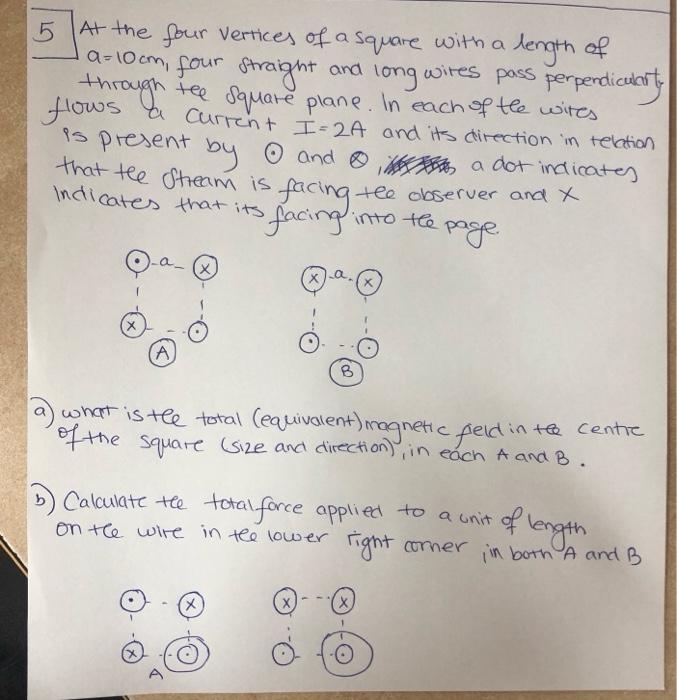 5 At the four vertices of a square with a length of
a=10cm, four straight and long wires pass perpendicularty
through tee square plane. In each of tee wires
flows a current I=2A and its direction in relation
is present by ⊙ and ⊗, a dot indicates
that tee stream is facing tee observer and X
Indicates that its facing into tee page.
⊙-a-ⓧ ⓧ-a-ⓧ
ⓧ--⊙ ⊙--⊙
A B
a) what is tee total (equivalent) magnetic field in tee centre
of the square (size and direction), in each A and B.
b) Calculate tee total force applied to a unit of length
on tee wire in tee lower right corner, in both A and B
⊙--ⓧ ⓧ---ⓧ
ⓧ--⊙ ⊙--⊙
A